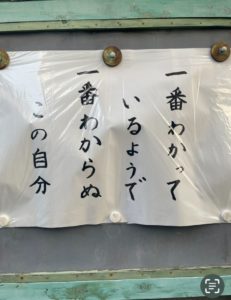 一番わかって
いるようで
一番わからぬ
この自分